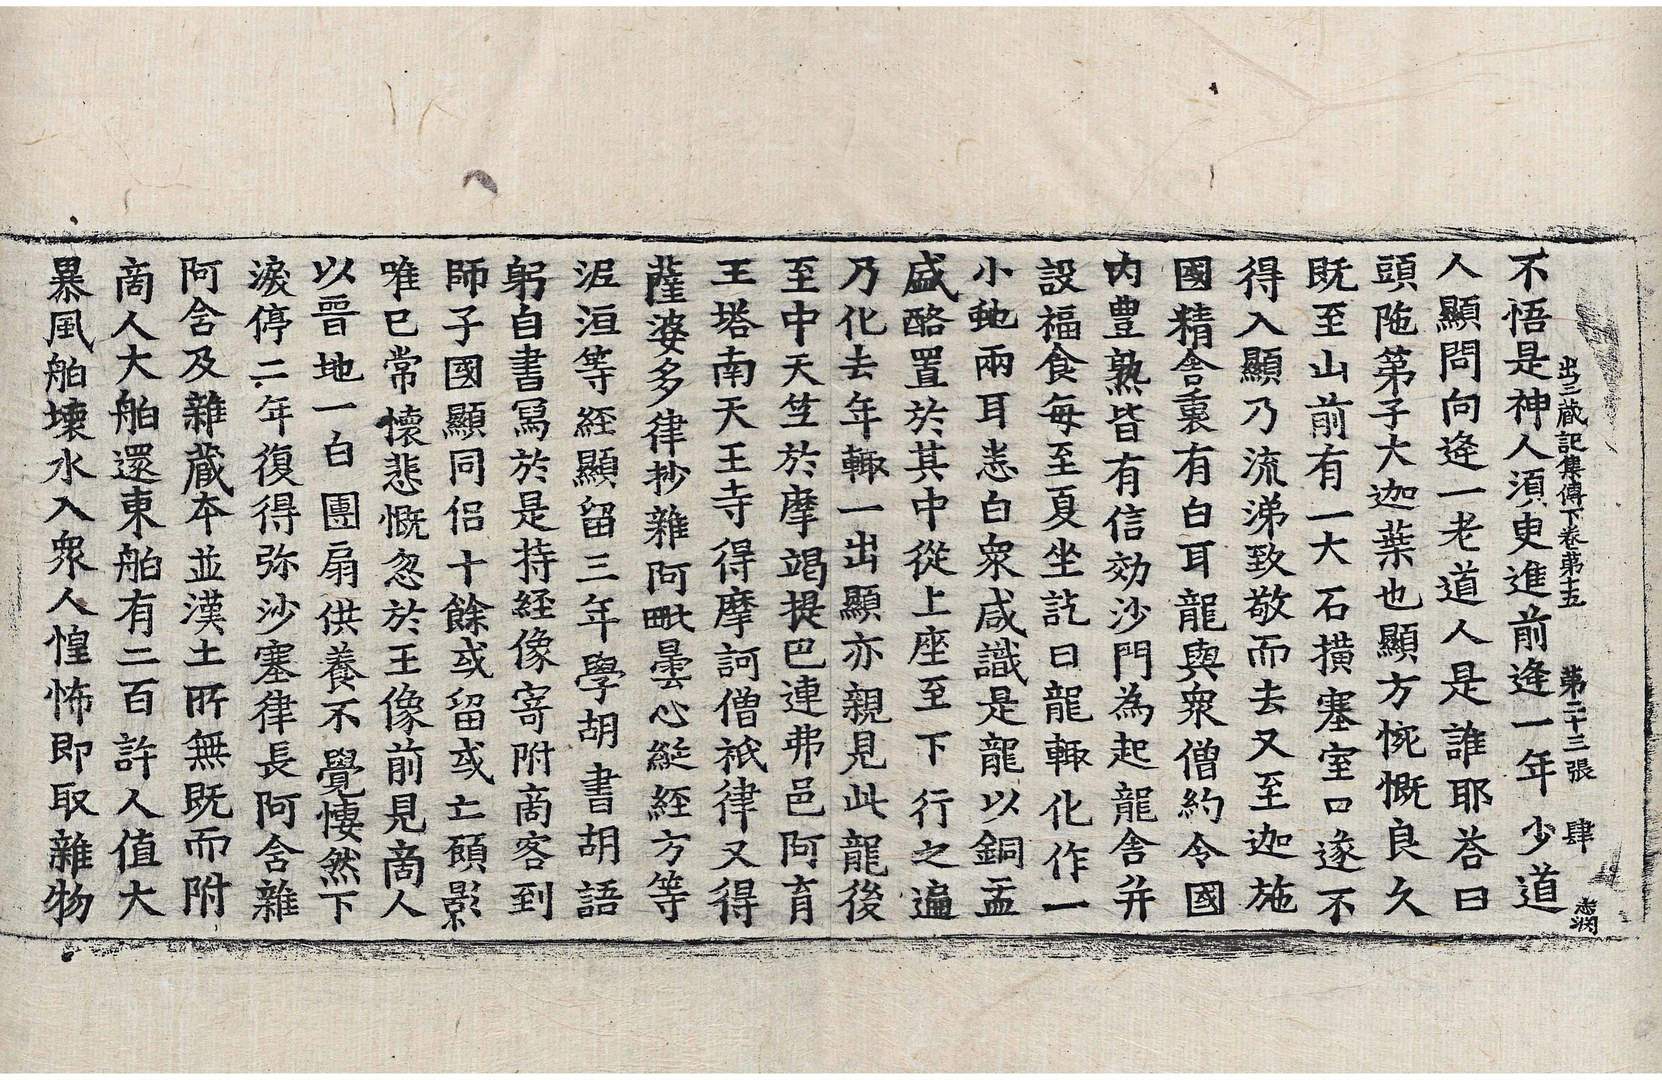 出三蔵記集傳下卷第十五 第二十三張 肆
不悟是神人須臾進前逢一年少道
人顯問向逢一老道人是誰耶答曰
頭陁第子大迦葉也顯方惋慨良久
既至山前有一大石撗塞室口遂不
得入顯乃流涕致敬而去又至迦施
國精舍裏有白耳龍與衆僧約令國
内豊熟皆有信効沙門為起龍舍并
設福食每至夏坐訖日龍輙化作一
小虵兩耳悉白衆咸識是龍以銅盂
盛酪置於其中從上座至下行之遍
乃化去年輙一出顯亦親見此龍後
至中天竺於摩竭提巴連弗邑阿育
王塔南天王寺得摩訶僧祇律又得
薩婆多律抄雜阿毗曇心綖経方等
泥洹等経顯留三年學胡書胡語
躬自書寫於是持経像寄附商客到
師子國顯同侣十餘或留或亡顧影
唯巳常懷悲慨忽於王像前見商人
以晋地一白團扇供養不覺悽然下
淚停二年復得弥沙塞律長阿含雜
阿含及雜蔵本並漢土所無既而附
商人大舶還東舶有二百許人值大
暴風舶壊水入衆人惶怖即取雜物